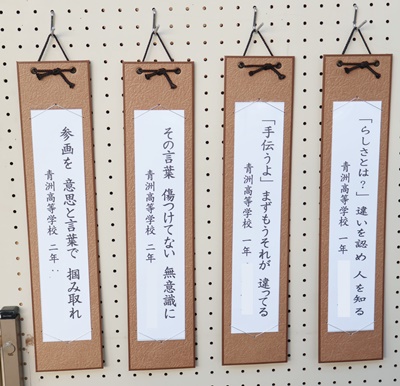 「らしさとは?」 違いを認め 人を知る
青洲高等学校 一年
「手伝うよ」 まずもうそれが 違ってる
青洲高等学校 一年
その言葉 傷つけてない 無意識に
青洲高等学校 二年
参画を 意思と言葉で 掴み取れ
青洲高等学校 二年